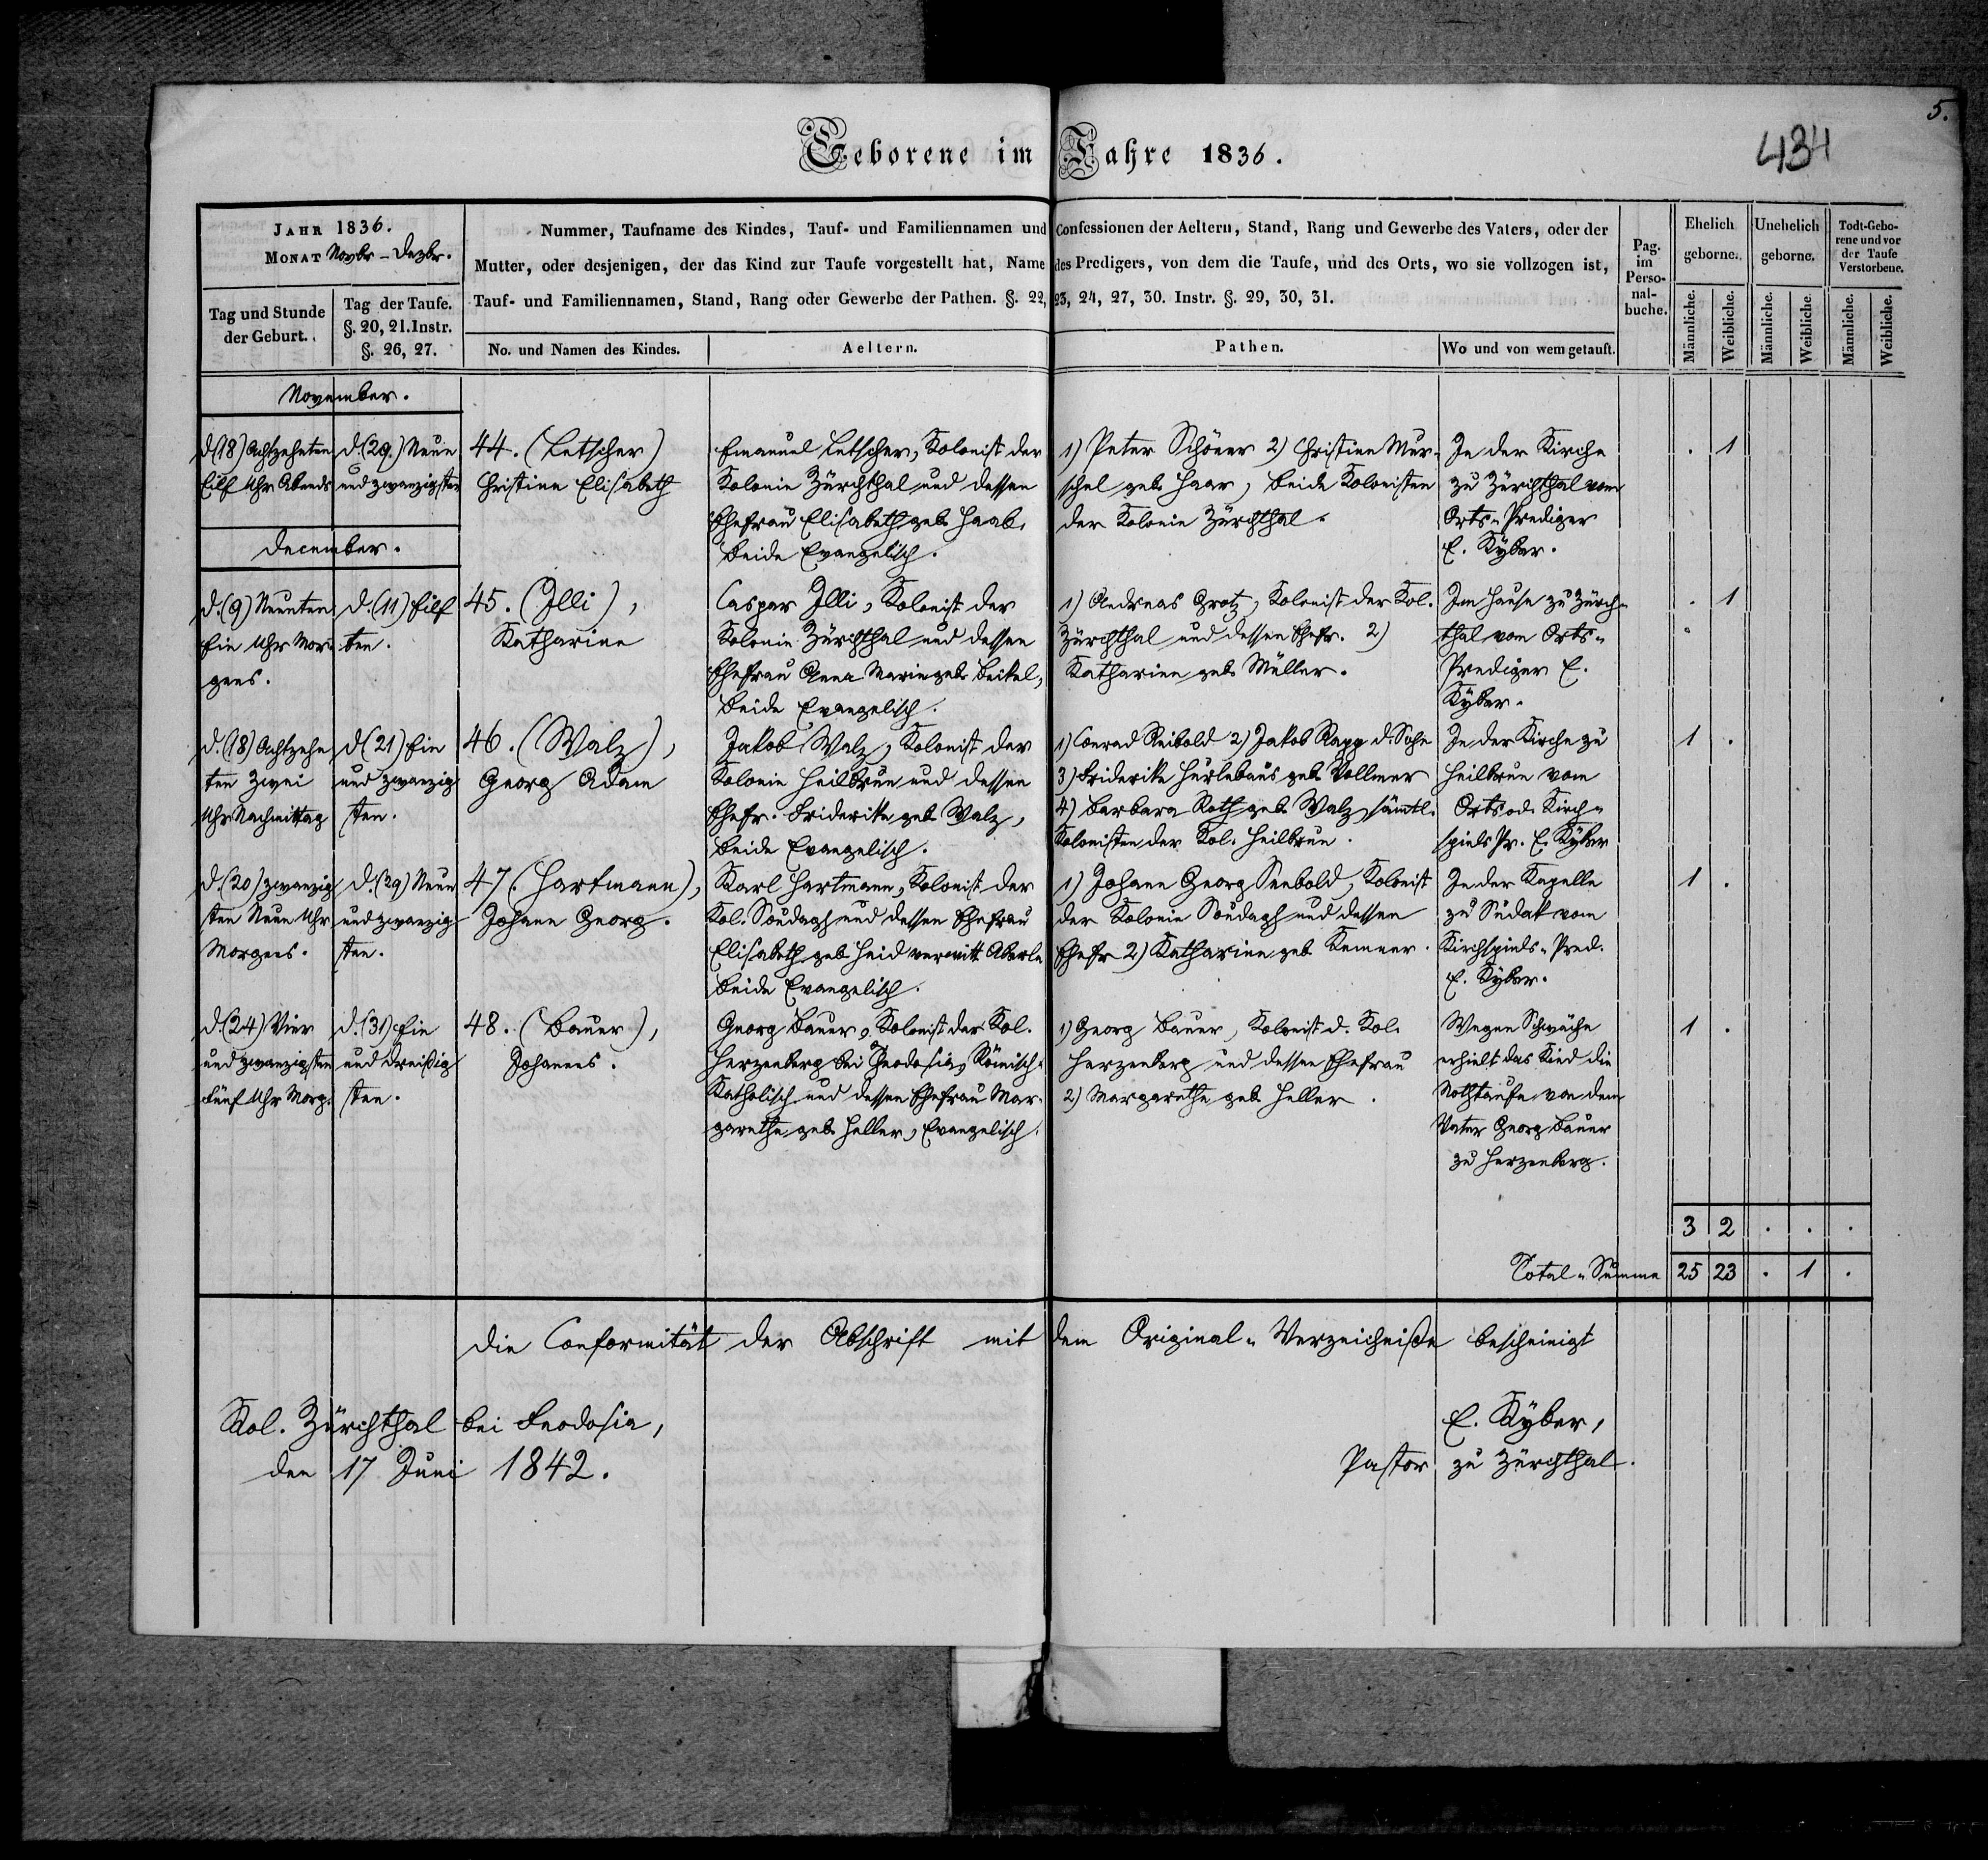 5.
434
Geborene im Jahre 1836.
JAHR 1836.
MONAT Novbr - Dezbr.
Nummer, Taufname des Kindes, Tauf- und Familiennamen und Confessionen der Aeltern, Stand, Rang und Gewerbe des Vaters, oder der
Mutter, oder desjenigen, der das Kind zur Taufe vorgestellt hat, Name des Predigers, von dem die Taufe, und des Orts, wo sie vollzogen ist,
Tauf- und Familiennamen, Stand, Rang oder Gewerbe der Pathen. §. 22, 23, 24, 27, 30. Instr. §. 29, 30, 31.
Tag und Stunde
der Geburt.
Tag der Taufe.
§. 20, 21. Instr.
§. 26, 27.
No. und Namen des Kindes.
Aeltern.
Pathen.
Wo und von wem getauft.
Pag.
im
Perso-
nal-
buche.
Ehelich
geborne.
Unehelich
geborne.
Todt-Gebo-
rene und vor
der Taufe
Verstorbene.
Männliche.
Weibliche.
Männliche.
Weibliche.
Männliche.
Weibliche.
November.
d. (18) Achtzehnten
Eilf Uhr Abends
d. (29.) Neun
und zwanzigsten
44. (Letscher)
Christine Elisabeth
Emanuel Letscher, Kolonist der
Kolonie Zürchthal und dessen
Ehefrau Elisabeth geb. Haab,
beide Evangelisch.
1) Peter Schöner 2) Christine Mur-
schel geb. Haar, beide Kolonisten
der Kolonie Zürchthal.
In der Kirche
zu Zürchthal vom
Orts-Prediger
E. Kyber.
. 1
December.
d. (9) Neunten
Ein Uhr Mor-
gens.
d. (11) Eilf
ten.
45. (Illi),
Katharine
Caspar Illi, Kolonist der
Kolonie Zürchthal und dessen
Ehefrau Anna Maria geb. Beikel,
beide Evangelisch.
1) Andreas Grotz, Kolonist der Kol.
Zürchthal und dessen Ehefr. 2)
Katharine geb. Müller.
Im Hause zu Zürch-
thal vom Orts-
Prediger E.
Kyber.
. 1
d. (18) Achtzehn
ten Zwei
Uhr Nachmittag
d. (21) Ein
und zwanzig
sten.
46. (Walz),
Georg Adam
Jakob Walz, Kolonist der
Kolonie Heilbrun und dessen
Ehefr. Friderike geb. Walz,
beide Evangelisch.
1) Conrad Reibold 2) Jakob Rapp d. Sohn
3) Friderike Hurlebaus geb. Vollmer
4) Barbara Roth geb. Walz, sämtl.
Kolonisten der Kol. Heilbrun.
In der Kirche zu
Heilbrun vom
Orts od. Kirch-
spiels Pr. E. Kyber
1 .
d. (20) zwanzig
sten Neun Uhr
Morgens.
d. (29) Neun
und zwanzig
sten.
47. (Hartmann),
Johann Georg.
Karl Hartmann, Kolonist der
Kol. Soudagh und dessen Ehefrau
Elisabeth geb. Heid verwitt. Aberle
beide Evangelisch.
1) Johann Georg Seebold, Kolonist
der Kolonie Soudagh und dessen
Ehefr 2) Katharine geb. Kemner.
In der Kapelle
zu Sudak vom
Kirchspiels-Pred.
E. Kyber.
1 .
d. (24) Vier
und zwanzigsten
Fünf Uhr Morg.
d. (31) Ein
und Dreißig
sten.
48. (Bauer),
Johannes.
Georg Bauer, Kolonist der Kol.
Herzenberg bei Theodosia, Römisch-
Katholisch und dessen Ehefrau Mar-
garethe geb. Heller, Evangelisch.
1) Georg Bauer, Kolonist d. Kol.
Herzenberg und dessen Ehefrau
2) Margarethe geb. Heller.
Wegen Schwäche
erhielt das Kind die
Nothtaufe von dem
Vater Georg Bauer
zu Herzenberg.
1 .
3 2 . . .
Total-Summe 25 23 . 1 .
Die Conformität der Abschrift mit dem Original-Verzeichniße bescheinigt
Kol. Zürchthal bei Feodosia,
den 17 Juni 1842.
E. Kyber,
Pastor zu Zürchthal.